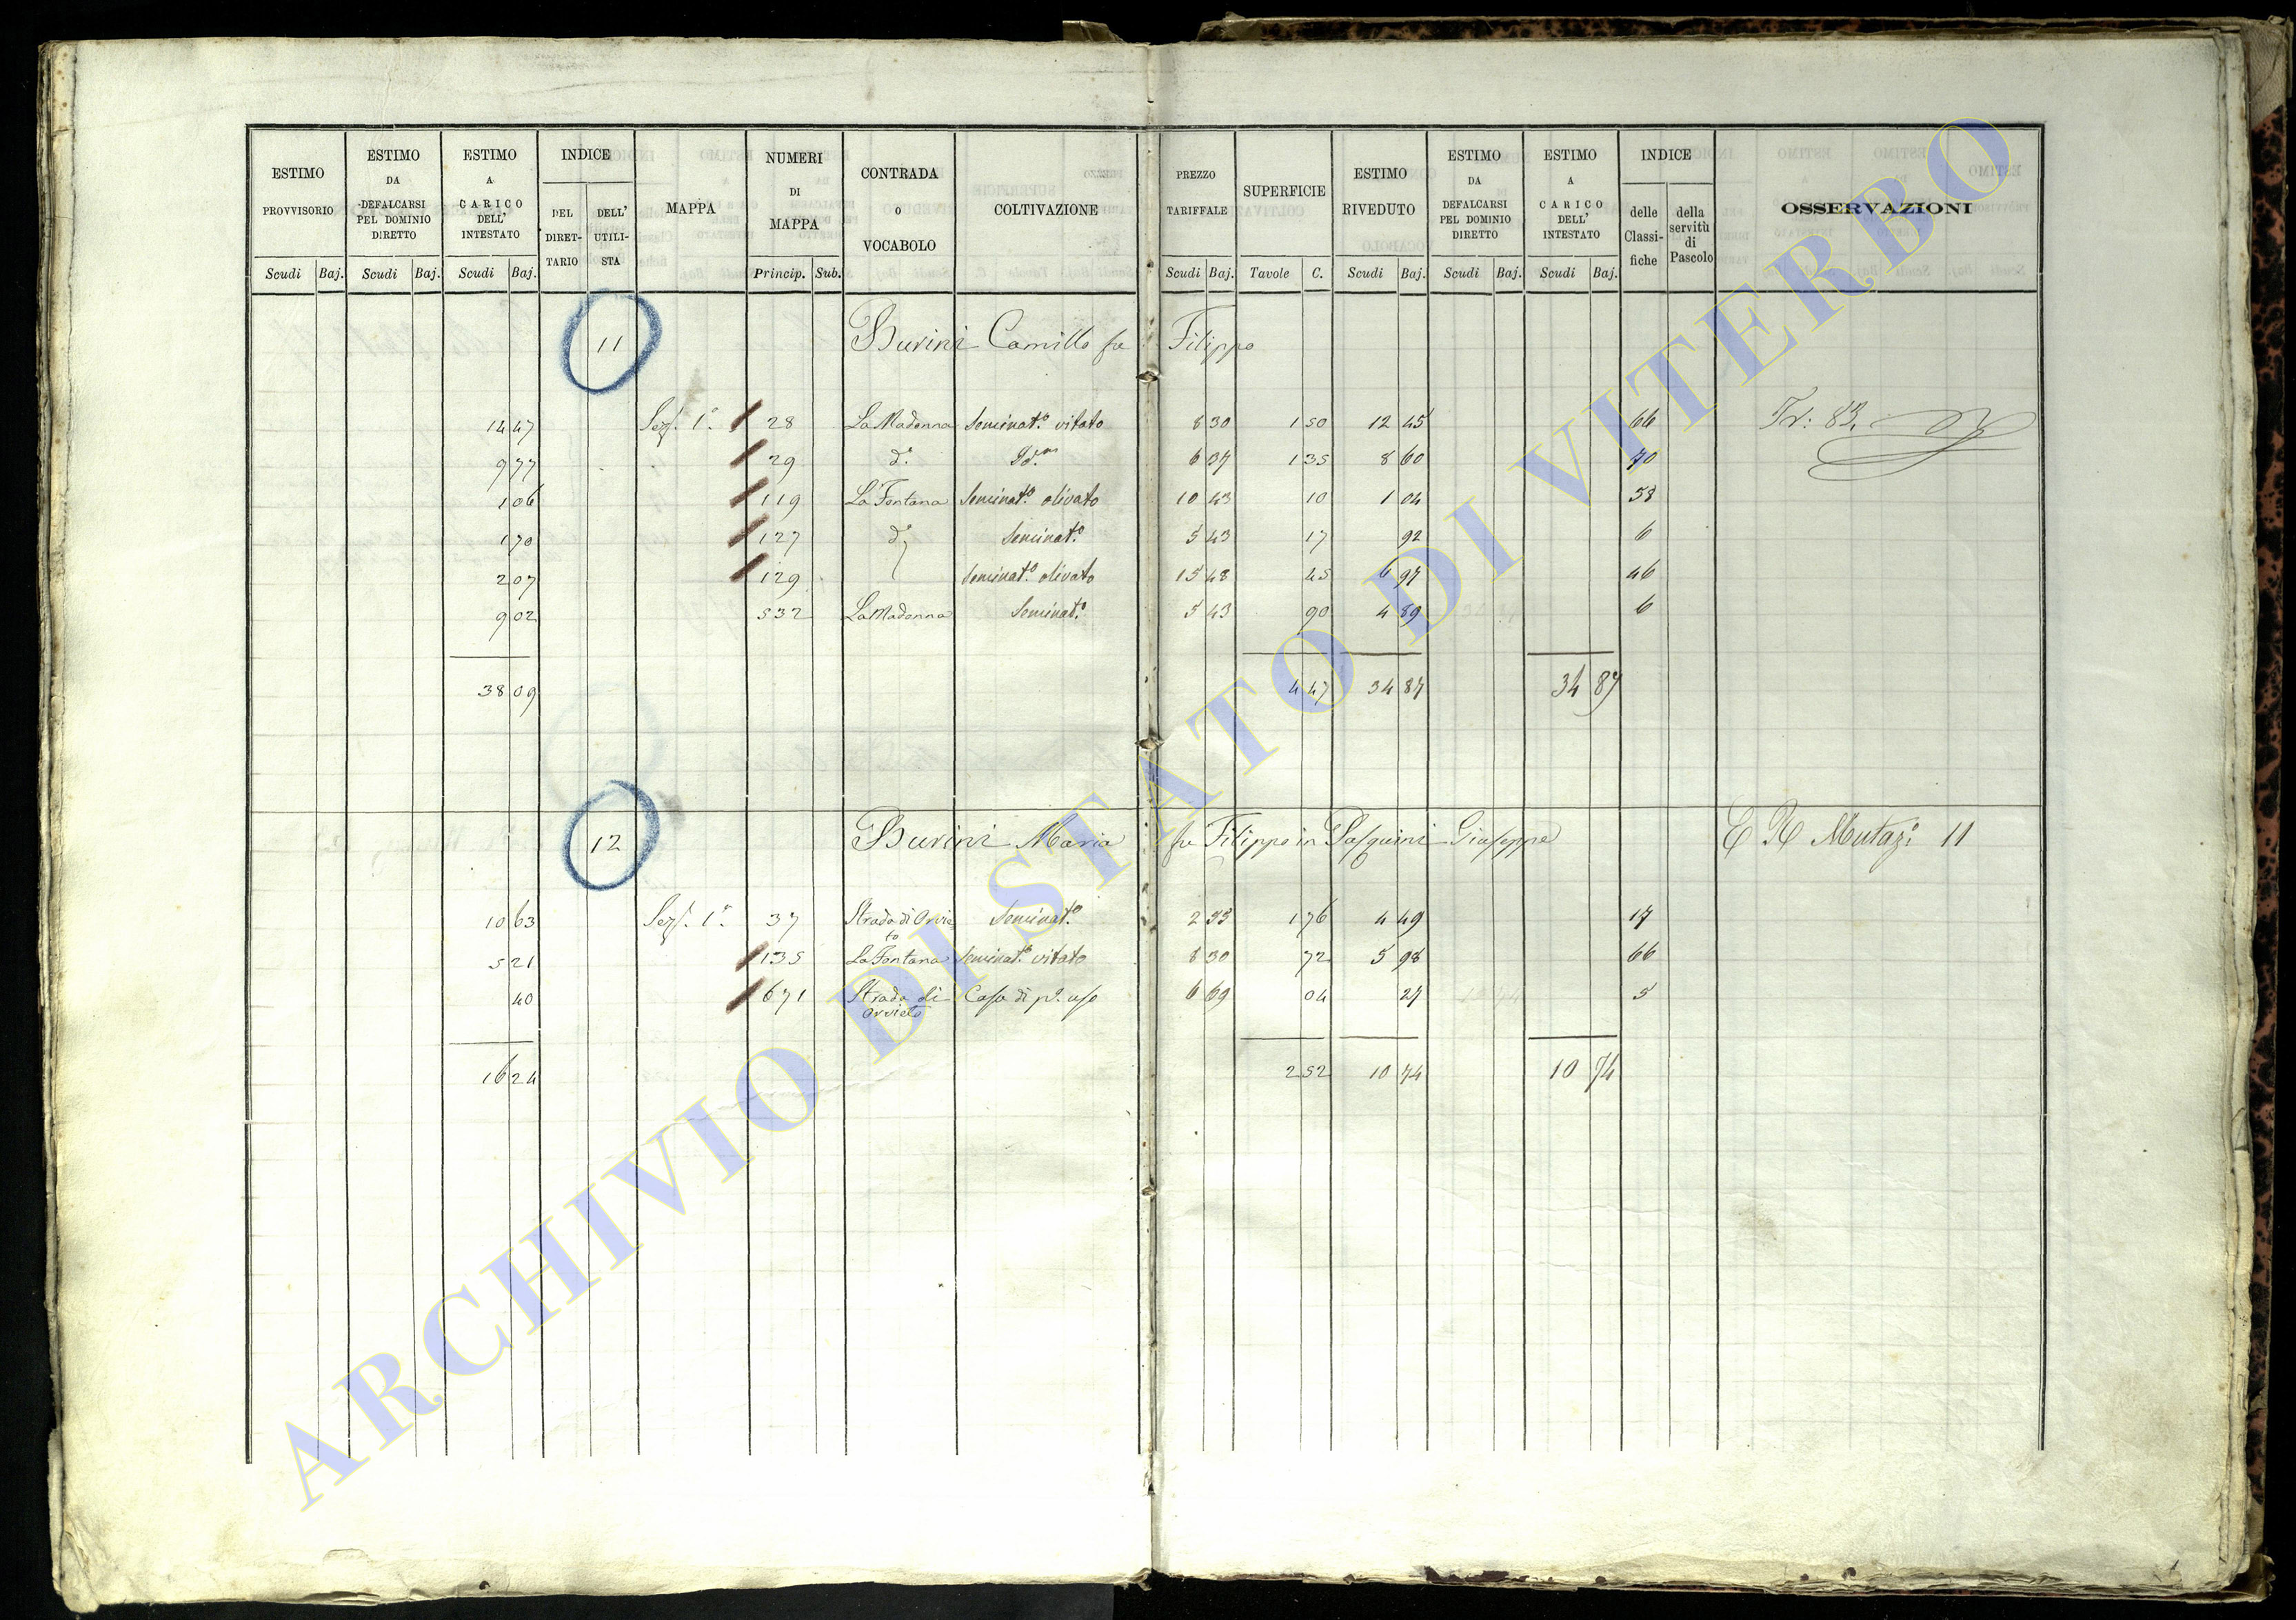 ESTIMO PROVVISORIO | ESTIMO DA DEFALCARSI PEL DOMINIO DIRETTO | ESTIMO A CARICO DELL' INTESTATO | INDICE DEL DIRETTARIO | DELL' UTILISTA | MAPPA | NUMERI DI MAPPA | CONTRADA o VOCABOLO | COLTIVAZIONE | PREZZO TARIFFALE | SUPERFICIE | ESTIMO RIVEDUTO | ESTIMO DA DEFALCARSI PEL DOMINIO DIRETTO | ESTIMO A CARICO DELL' INTESTATO | INDICE delle Classifiche | della servitù di Pascolo | OSSERVAZIONI
Scudi Baj. | Scudi Baj. | Scudi Baj. | Princip. Sub. | Scudi Baj. | Tavole C. | Scudi Baj. | Scudi Baj. | Scudi Baj.
11 Burini Camillo fu Filippo
14 47 Sez. 1ª 28 La Madonna Seminat.º vitato 8 30 1 50 12 45 66 Tr: 83.
9 77 29 d.ª Id.m 6 37 1 35 8 60 70
1 06 119 La Fontana Seminat.º olivato 10 43 10 1 04 58
1 70 127 d.ª Seminat.º 5 43 17 92 6
2 07 129 Seminat.º olivato 15 48 45 6 97 46
9 02 532 La Madonna Seminat.º 5 43 90 4 89 6
38 09 4 47 34 87 34 87
12 Burini Maria fu Filippo in Pasquini Giuseppe E R Mutaz: 11
10 63 Sez. 1ª 37 Strada di Orvieto Seminat.º 2 55 1 76 4 49 17
5 21 135 La Fontana Seminat.º vitato 8 30 72 5 98 66
40 671 Strada di Orvieto Casa di pº. uso 6 69 04 27 5
16 24 2 52 10 74 10 74
ARCHIVIO DI STATO DI VITERBO